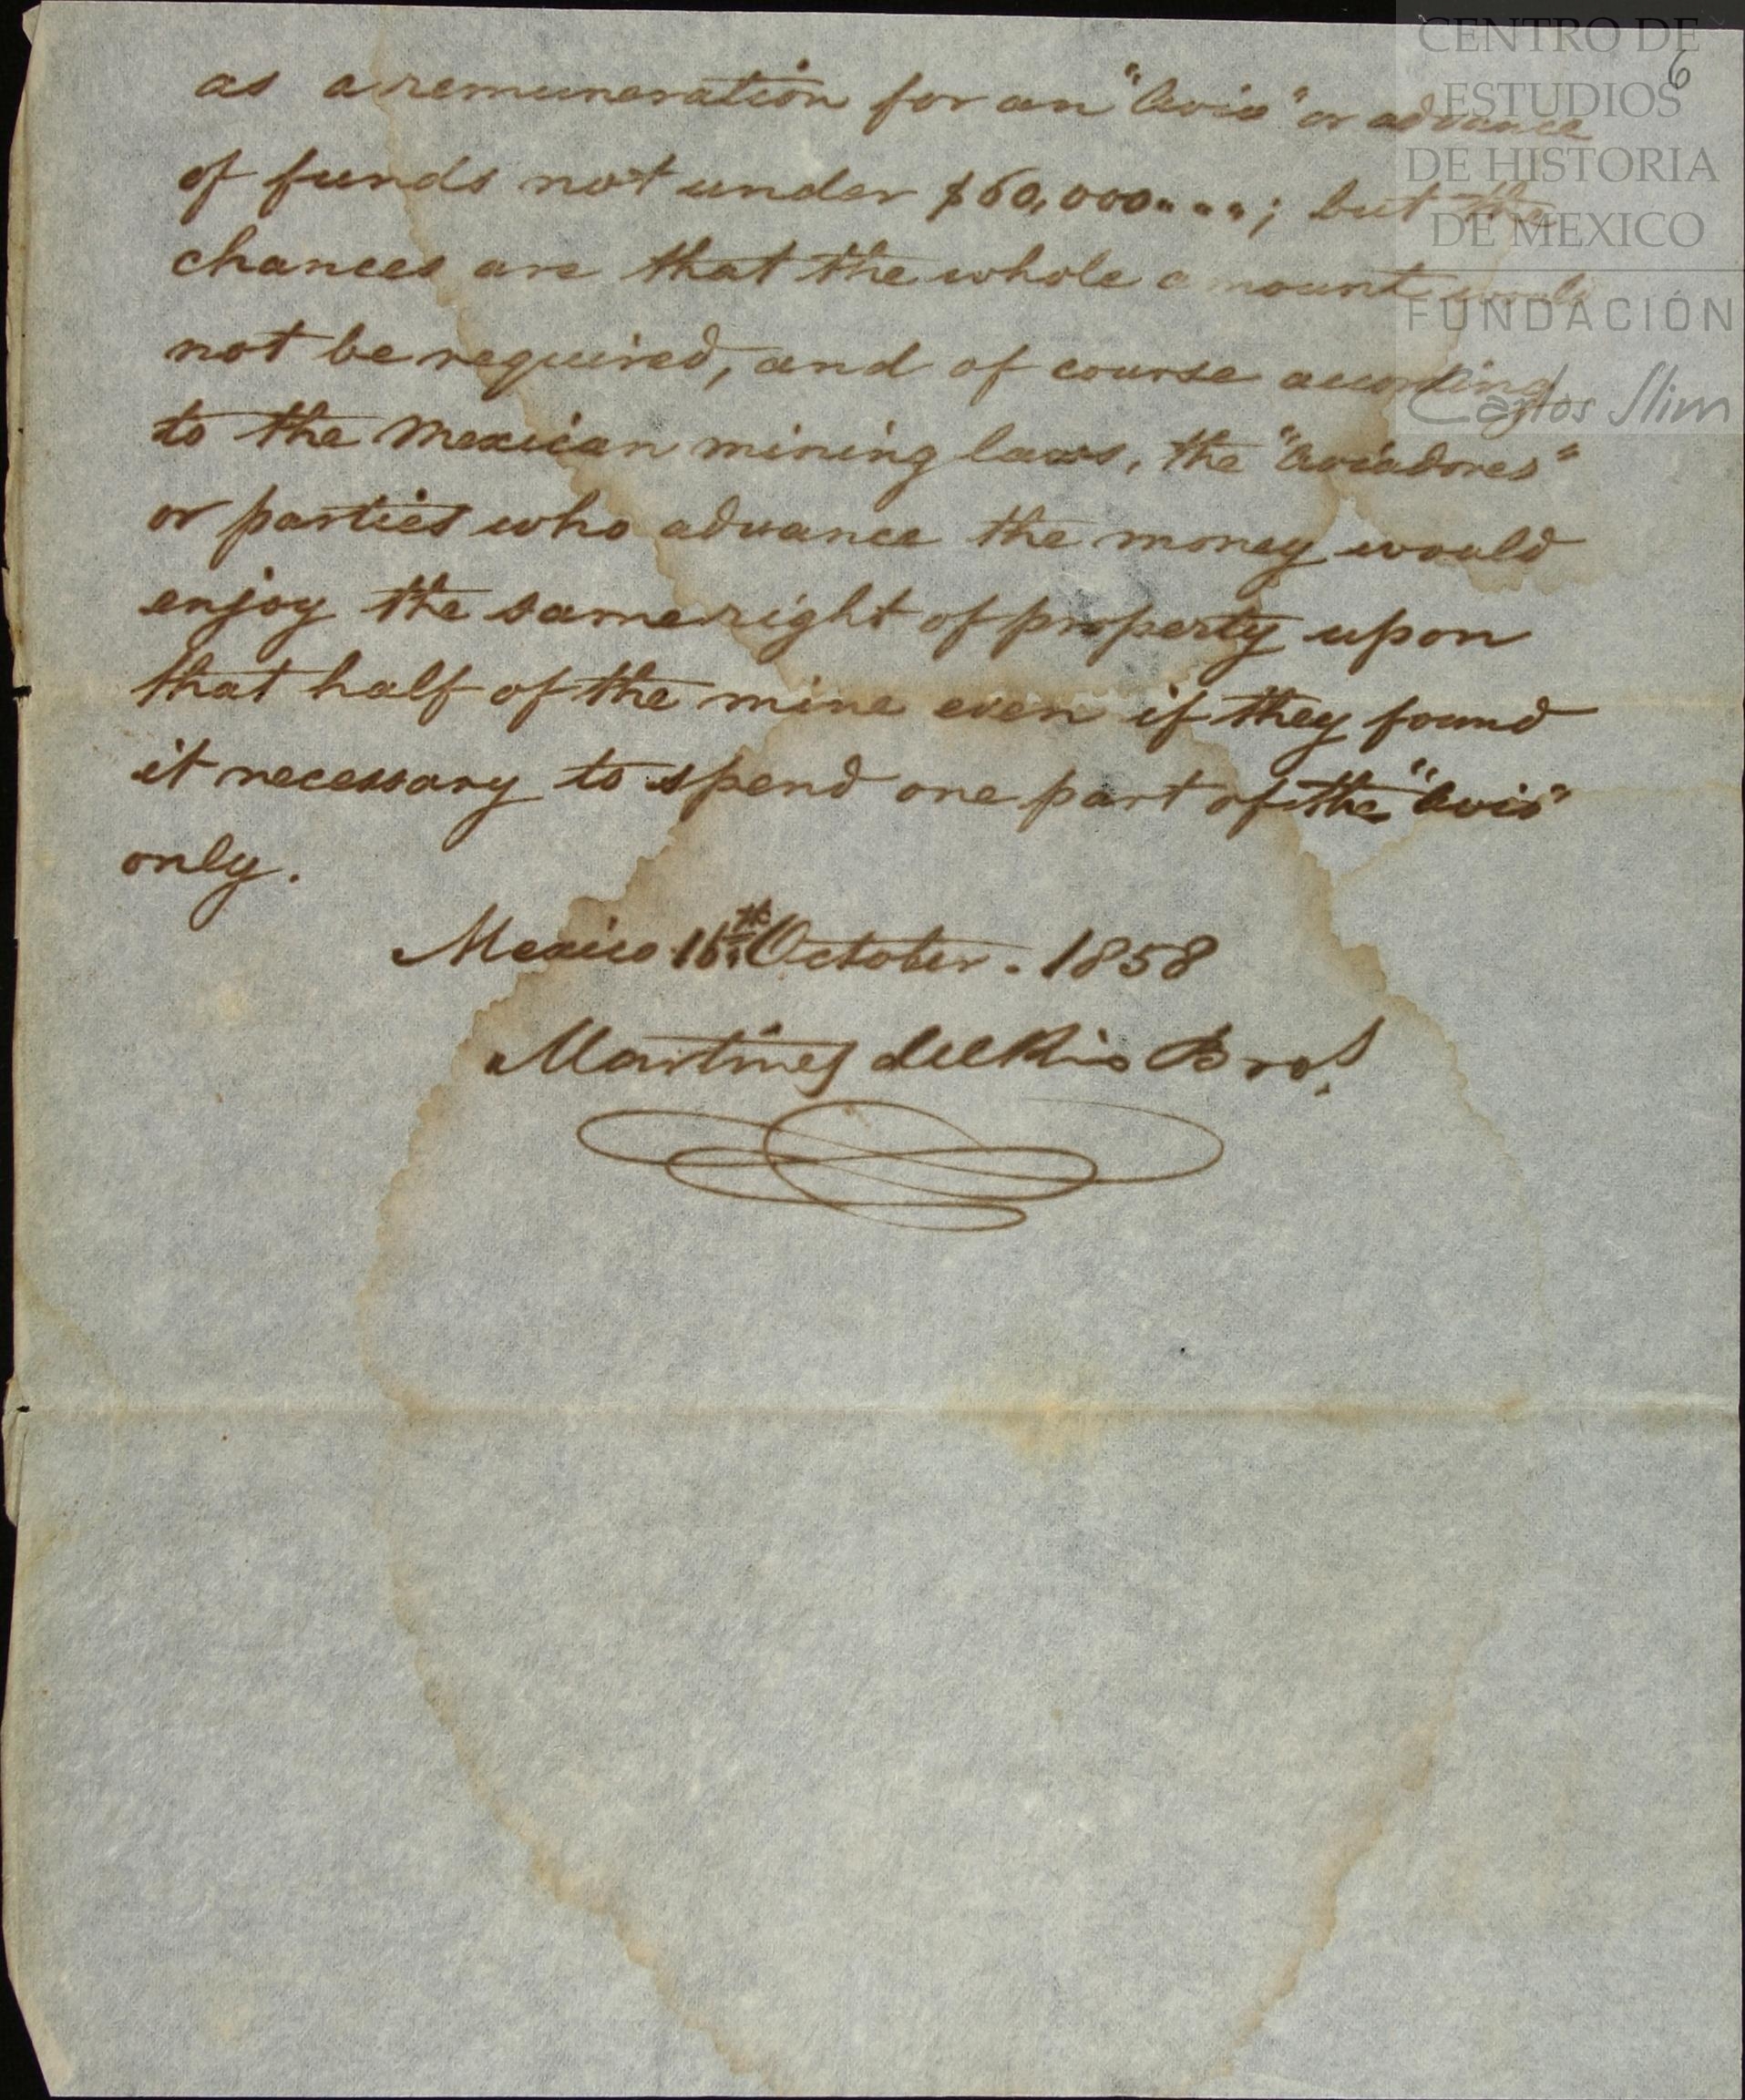 6
as a remuneration for an "Avio" or advance
of funds not under $60,000""""; but the
chances are that the whole amount would
not be required, and of course according
to the Mexican mining laws, the "Aviadores"
or parties who advance the money would
enjoy the same right of property upon
that half of the mine even if they found
it necessary to spend one part of the "Avio"
only.
Mexico 16th October. 1858
Martinez del Rio Bros.
CENTRO DE
ESTUDIOS
DE HISTORIA
DE MEXICO
FUNDACIÓN
Carlos Slim